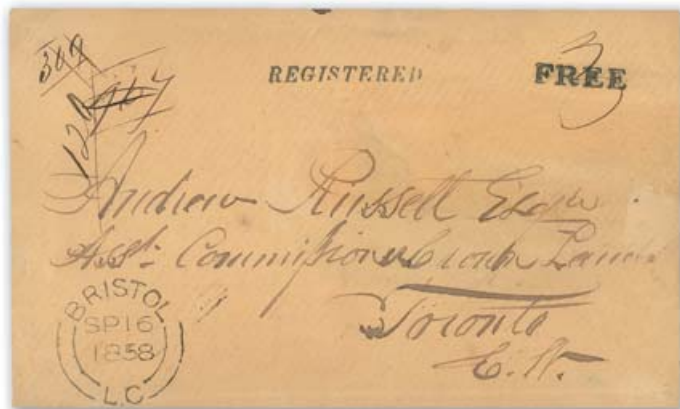 309
REGISTERED
FREE
3
967
120
Andrew Russell Esqre
Asst. Commissioner Crown Lands
Toronto
C.W.
BRISTOL
SP 16
1858
L.C